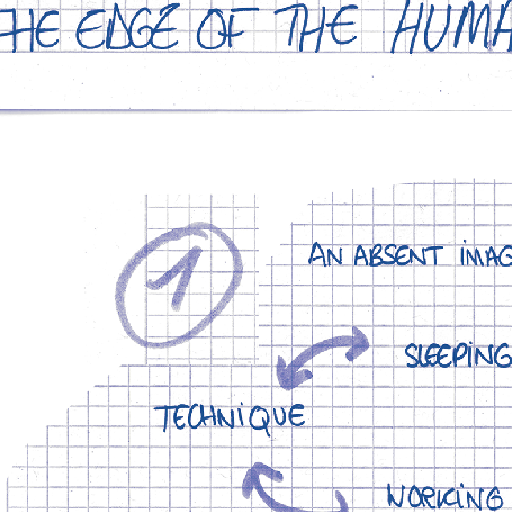 THE EDGE OF THE HUMA
1
AN ABSENT IMAG
SLEEPING
TECHNIQUE
WORKING